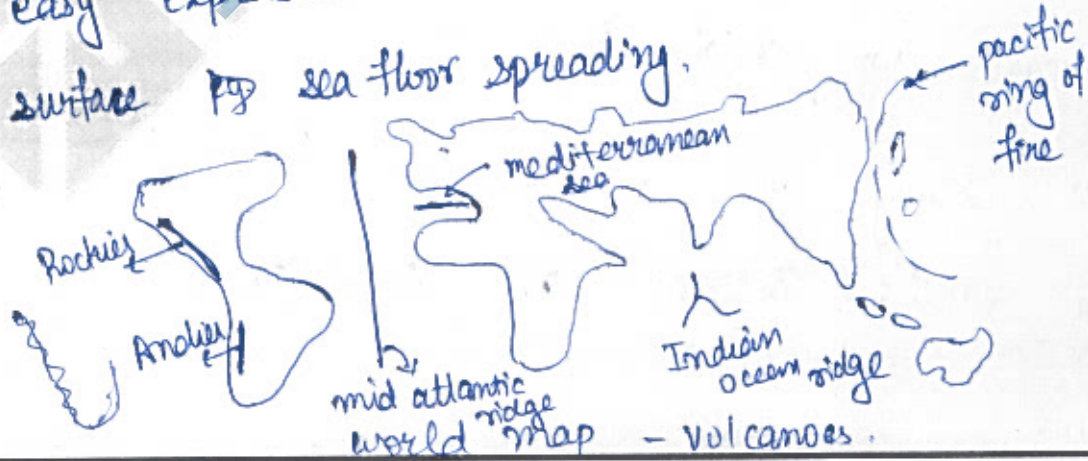 easy
surface sea floor spreading.
pacific
ring of
fire
mediterranean
sea
Rockies
Andies
mid atlantic
ridge
Indian
ocean ridge
world map - volcanoes.